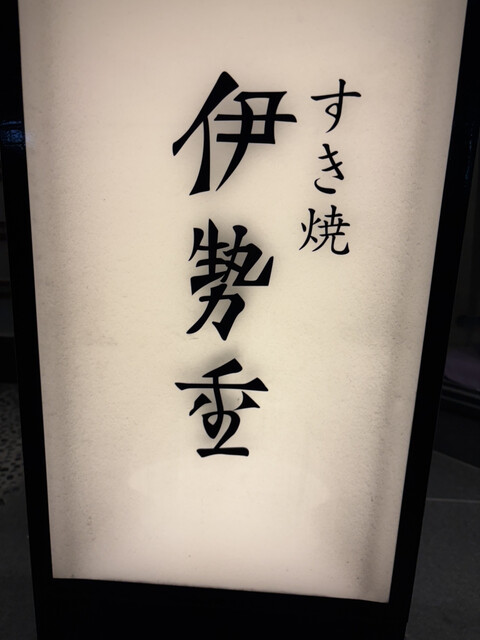 すき焼
伊勢重